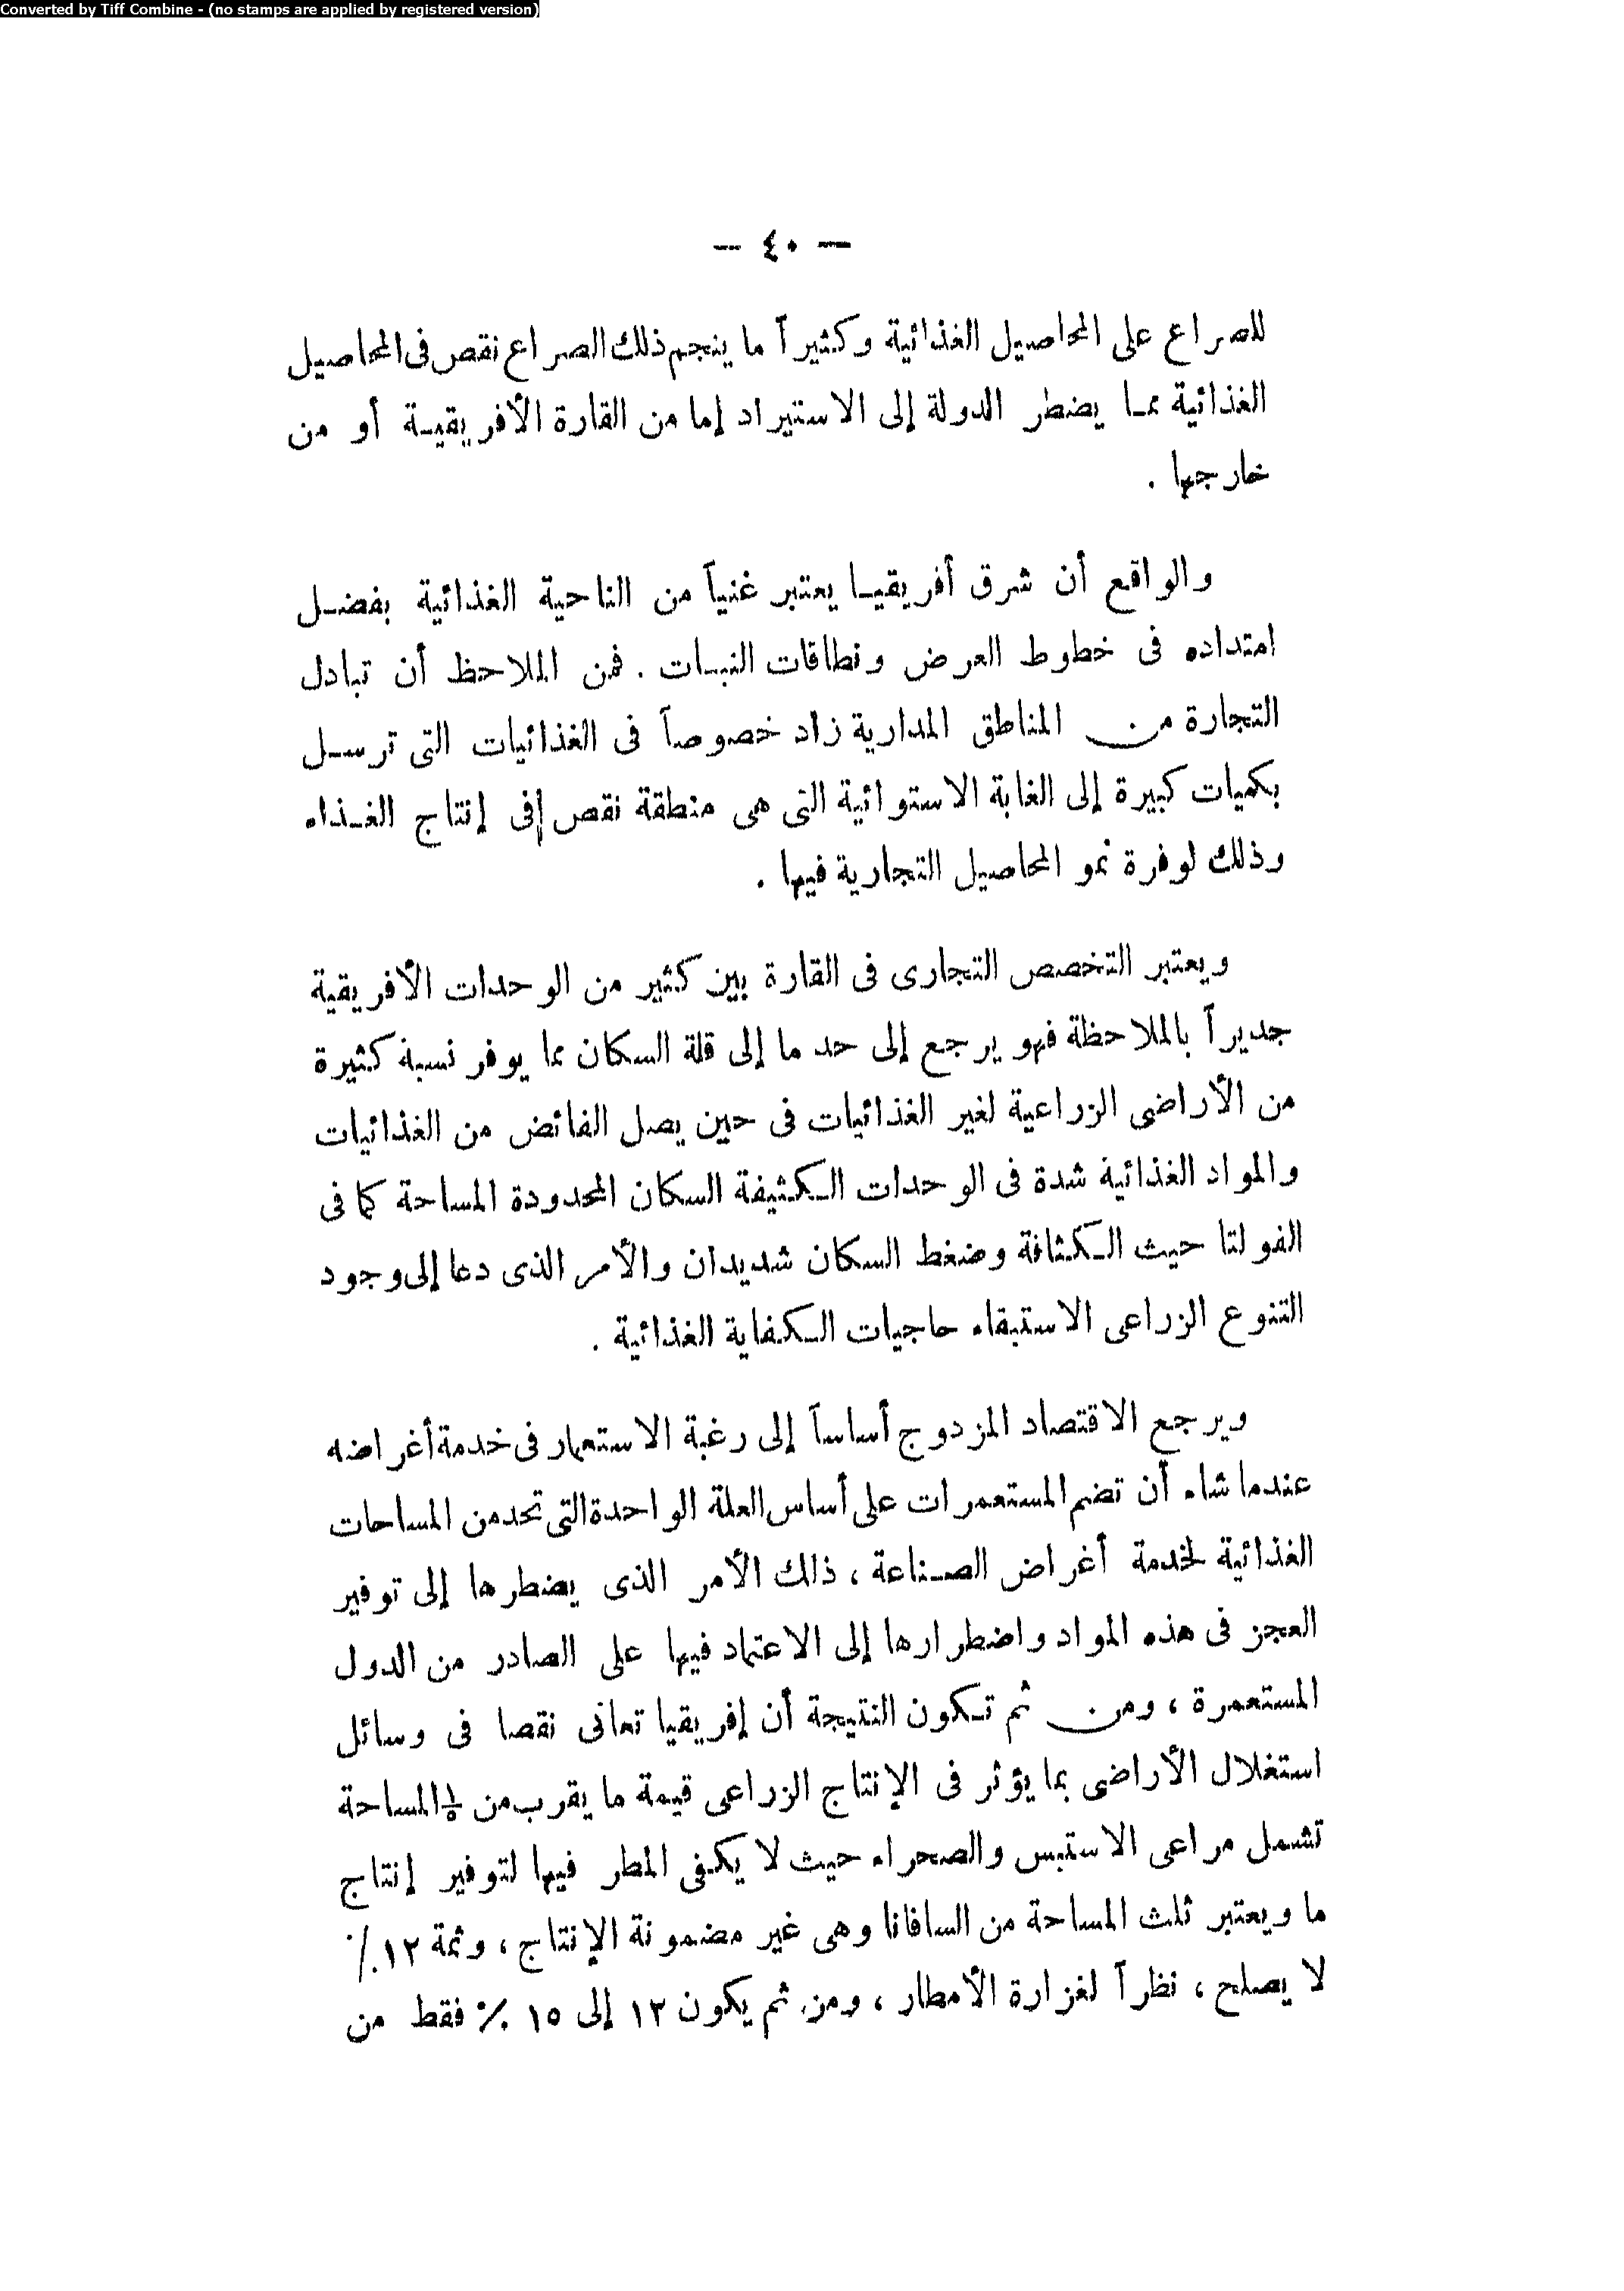 Converted by Tiff Combine - (no stamps are applied by registered version)
— ٤٠ —
للصراع على المحاصيل الغذائية وكثيراً ما ينجم ذلك الصراع نقص فى المحاصيل
الغذائية مما يضطر الدولة إلى الاستيراد إما من القارة الأفريقية أو من
خارجها .
والواقع أن شرق أفريقيا يعتبر غنياً من الناحية الغذائية بفضل
امتداده فى خطوط العرض ونطاقات النبات . فمن الملاحظ أن تبادل
التجارة من المناطق المدارية زاد خصوصاً فى الغذائيات التى ترسل
بكميات كبيرة إلى الغابة الاستوائية التى هى منطقة نقص فى إنتاج الغذاء
وذلك لوفرة نمو المحاصيل التجارية فيها .
ويعتبر التخصص التجارى فى القارة بين كثير من الوحدات الأفريقية
جديراً بالملاحظة فهو يرجع إلى حد ما إلى قلة السكان مما يوفر نسبة كثيرة
من الأراضى الزراعية لغير الغذائيات فى حين يصل الفائض من الغذائيات
والمواد الغذائية شدة فى الوحدات الكثيفة السكان المحدودة المساحة كما فى
الفولتا حيث الكثافة وضغط السكان شديدان والأمر الذى دعا إلى وجود
التنوع الزراعى الاستبقاء حاجيات الكفاية الغذائية .
ويرجع الاقتصاد المزدوج أساساً إلى رغبة الاستعمار فى خدمة أغراضه
عندما شاء أن تضم المستعمرات على أساس الغلة الواحدة التى تحد من المساحات
الغذائية لخدمة أغراض الصناعة ، ذلك الأمر الذى يضطرها إلى توفير
العجز فى هذه المواد واضطرارها إلى الاعتماد فيها على الصادر من الدول
المستعمرة ، ومن ثم تكون النتيجة أن إفريقيا تعانى نقصا فى وسائل
استغلال الأراضى بما يؤثر فى الإنتاج الزراعى قيمة ما يقرب من المساحة
تشمل مراعى الاستبس والصحراء حيث لا يكفى المطر فيها لتوفير إنتاج
ما ويعتبر ثلث المساحة من السافانا وهى غير مضمونة الإنتاج ، وثمة ١٢٪
لا يصلح ، نظراً لغزارة الأمطار ، ومن ثم يكون ١٢ إلى ١٥ ٪ فقط من